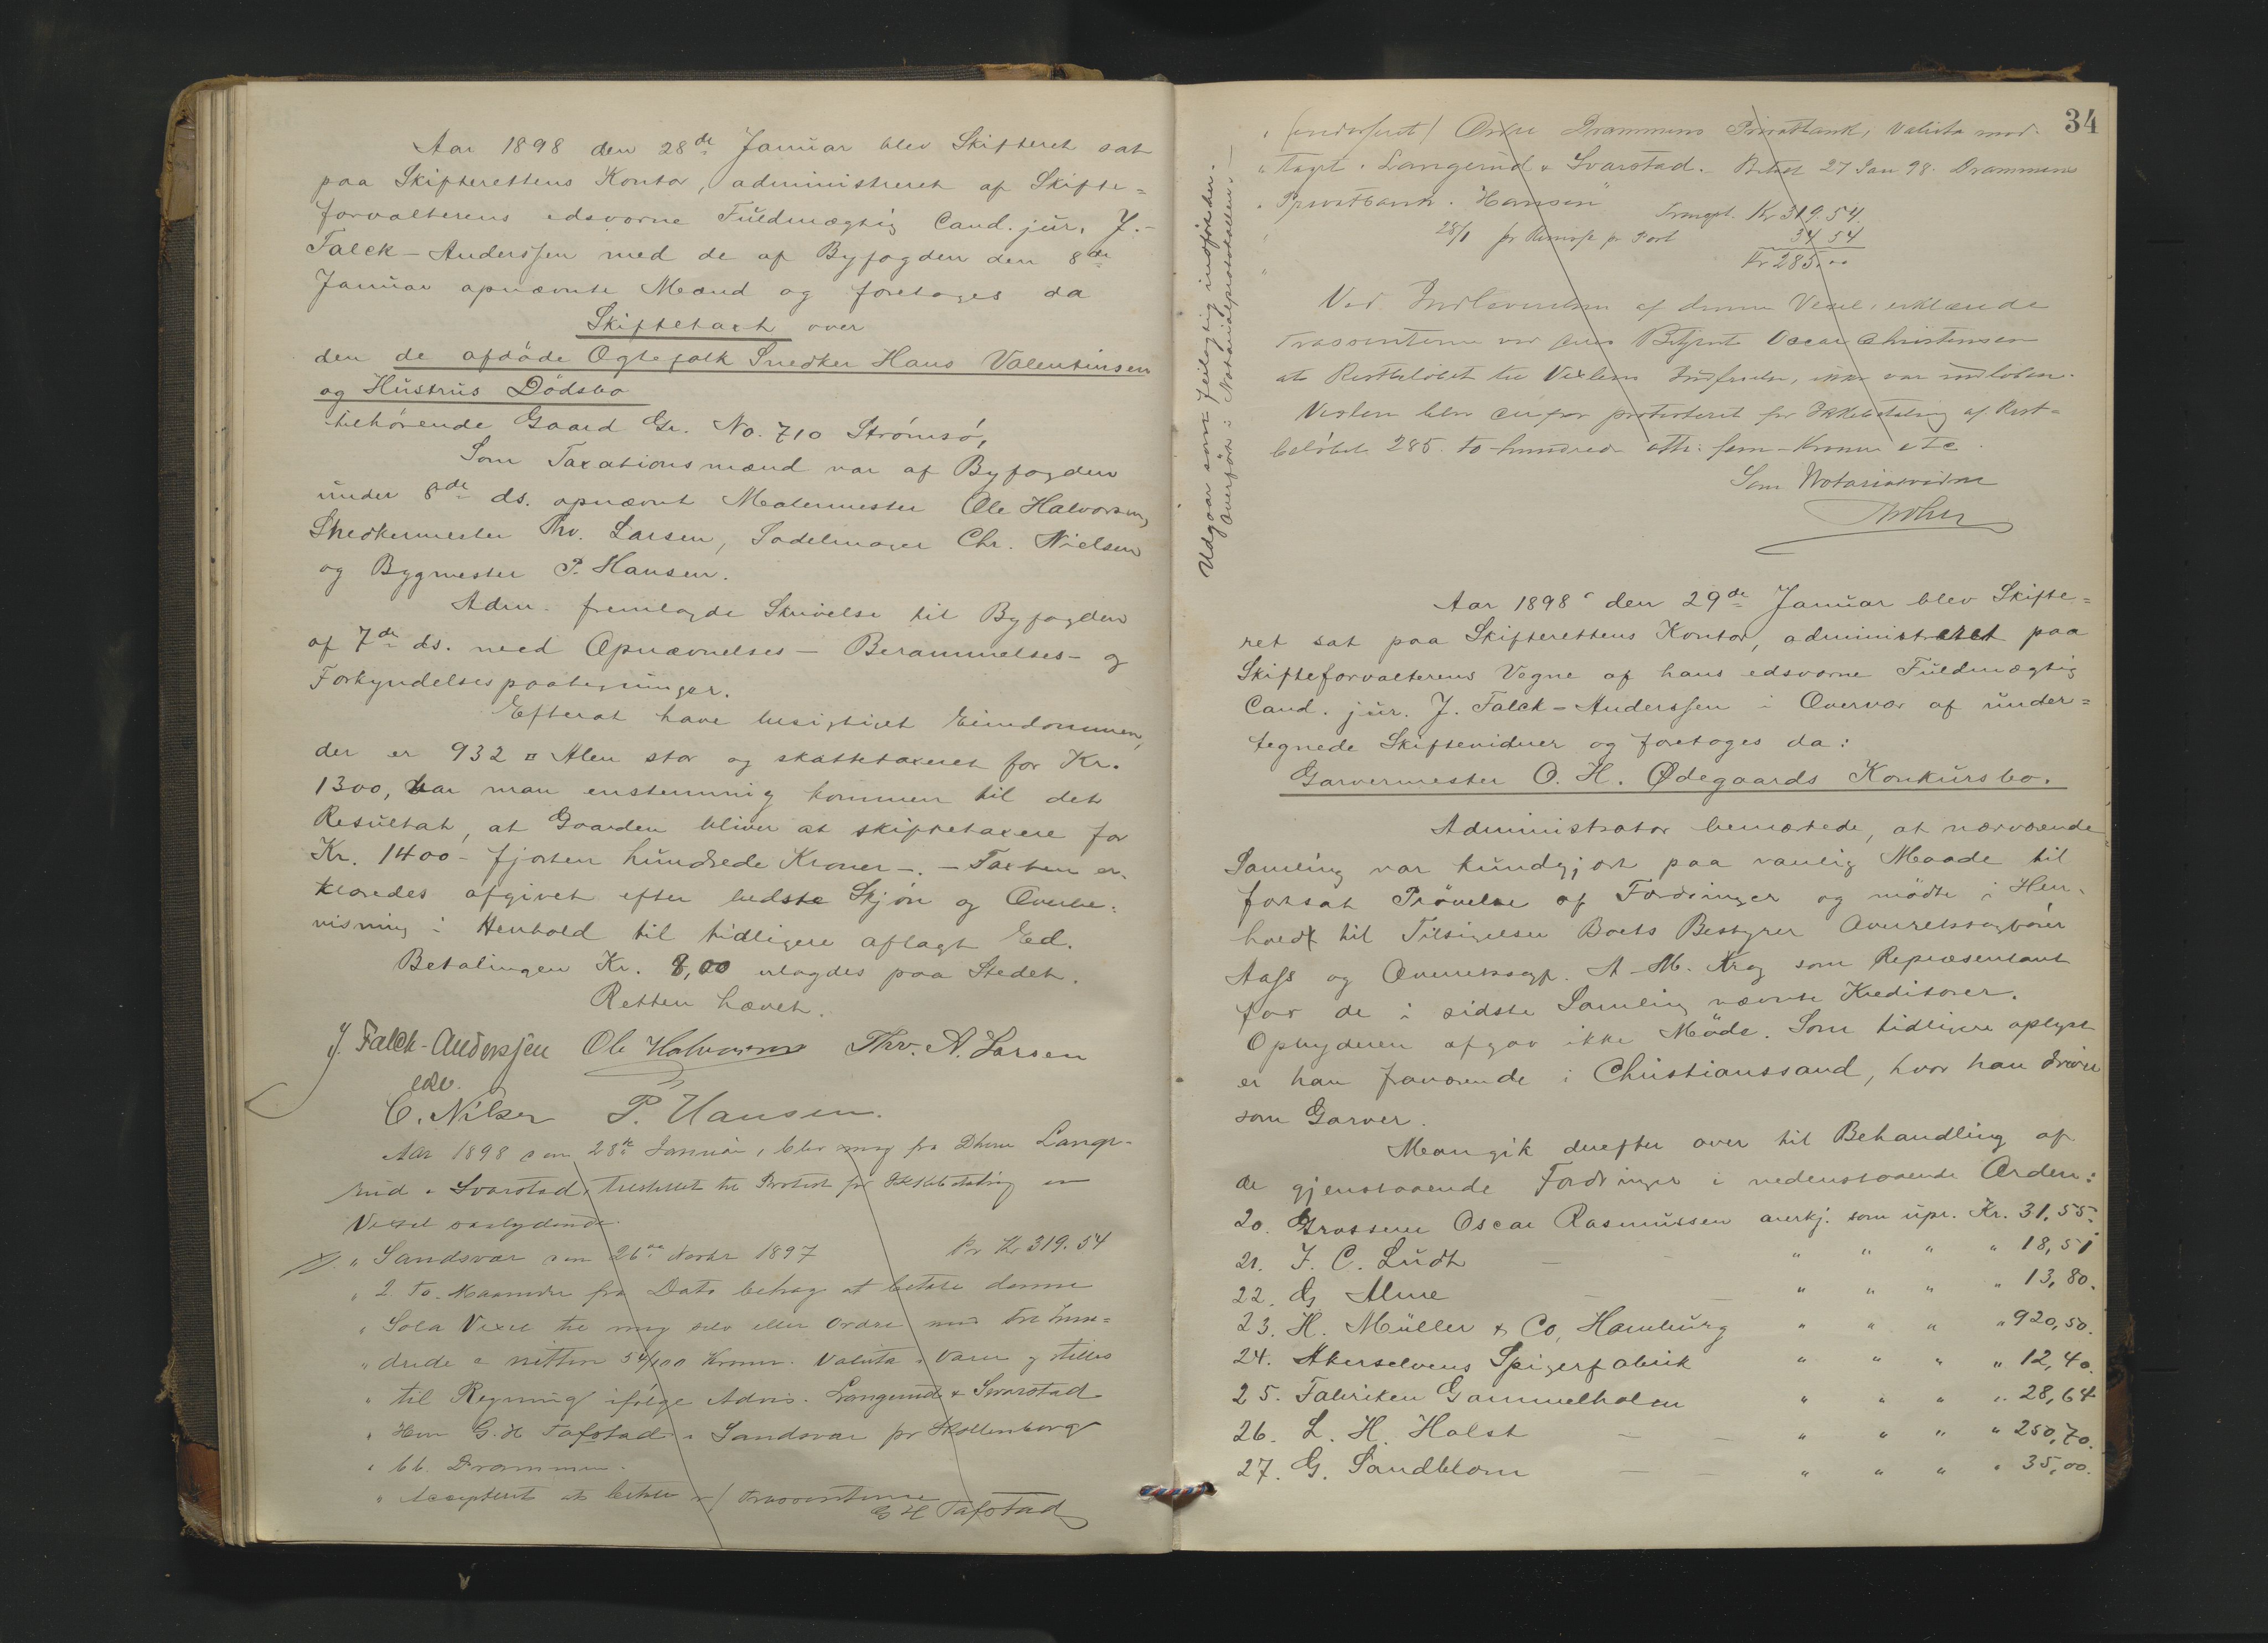 Aar 1898 den 28de Januar blev Skifteret sat
paa Skifterettens Kontor, administreret af Skifte=
forvalterens edsvorne Fuldmægtig Cand. jur. J.
Falck-Anderssen med de af Byfogden den 8de
Januar opnævnte Mænd og foretoges da
Skiftetaxt over
den de afdöde Ægtefolk Snedker Hans Valentinsen
og Hustrus Dödsbo
tilhörende Gaard Gr. No. 710 Strömsö,
Som Taxationsmænd var af Byfogden
under 8de ds. opnævnt Malermester Ole Halvorsen,
Snedkermester Thv. Larsen, Sadelmager Chr. Nielsen
og Bygmester P. Hansen.
Adm. fremlagde Skrivelse til Byfogden
af 7de ds. med Opnævnelses- Berammelses- og
Forkyndelsespaategninger.
Efterat have besigtiget Eiendommen,
der er 932 □ Alen stor og skattetaxeret for Kr.
1300, har man enstemmig kommen til det
Resultat, at Gaarden bliver at skiftetaxere for
Kr. 1400 - fjorten hundrede Kroner -. - Taxten er=
klæredes afgivet efter bedste Skjön og Overbe=
visning i Henhold til tidligere aflagt Ed.
Betalingen Kr. 8,00 erlagdes paa Stedet.
Retten hævet.
J. Falck-Anderssen Ole Halvorsen Thv. A. Larsen
edsv.
C. Nilsen P. Hansen.
Aar 1898 den 28de Januar, blev mig fra Dhrr Lange=
rud & Svarstad, tilstillet til Protest for Ikkebetaling en
Vexel saalydende.
" Sandsvær den 26de Novbr 1897 Pr Kr 319.54
" 2 to Maaneder fra Dato behag at betale denne
" Sola Vexel til mig selv eller Ordre med Tre hun=
" drede & nitten 54/100 Kroner. Valuta i Varer og stilles
" til Regning ifölge Advis. Langerud & Svarstad
" Herr G. H Tafstad i Sandsvær pr Skollenborg
" bb. Drammen.
" Accepteret at betale / Trassenterne
G H Tafstad
34
" (endosseret) Ordre Drammens Privatbank, Valuta mod=
" taget. Langerud & Svarstad. Betalt 27 Jan 98. Drammens
" Privatbank. Hansen"
Kr 319.54.
" 28/1 pr Rimesse pr Post 34 54
" Kr 285.00
Ved Indleverelsen af denne Vexel, erklærede
Trassenterne ved Betjent Oscar Christensen
at Restbelöbet til Vexlens Indfrielse, ikke var indloben.
Vexlen blev derfor protesteret for Ikkebetaling af Rest=
belöbet 285. to-hundrede otti fem - Kroner etc.
Som Notarialvidne
Udgaar som feilagtig indført her.
Overført i Notarialprotokollen.
Aar 1898 den 29de Januar blev Skifte=
ret sat paa Skifterettens Kontor, administreret paa
Skifteforvalterens Vegne af hans edsvorne Fuldmægtig
Cand. jur. J. Falck-Anderssen i Overvær af under=
tegnede Skiftevidner og foretoges da:
Garvermester O. H. Ødegaards Konkursbo.
Administrator bemærkede, at nærværende
Samling var kundgjort paa vanlig Maade til
fortsat Prövelse af Fordringer og mödte i Hen=
hold til Tilsigelse Boets Bestyrer Overretssagförer
Aass og Overretssagf. A. M. Krag som Repræsentant
for de i sidste Samling nævnte Kreditorer.
Opbyderen afgav ikke Möde. Som tidligere oplyst
er han fraværende i Christianssand, hvor han driver
som Garver.
Man gik derefter over til Behandling af
de gjenstaaende Fordringer i nedenstaaende Orden:
20. Grosserer Oscar Rasmussen anerkj. som upr. Kr. 31,55.
21. J. C. Ludt — " " " " 18,51
22. G Alme — — " " " " 13,80.
23. H. Müller & Co, Hamburg " " " " 920,50.
24. Akerselvens Spigerfabrik " " " " 12,40.
25. Fabriken Gammelholm " " " " 28,64
26. L. H. Holst — — " " " " 250,70.
27. G. Sandblom — — " " " " 35,00.